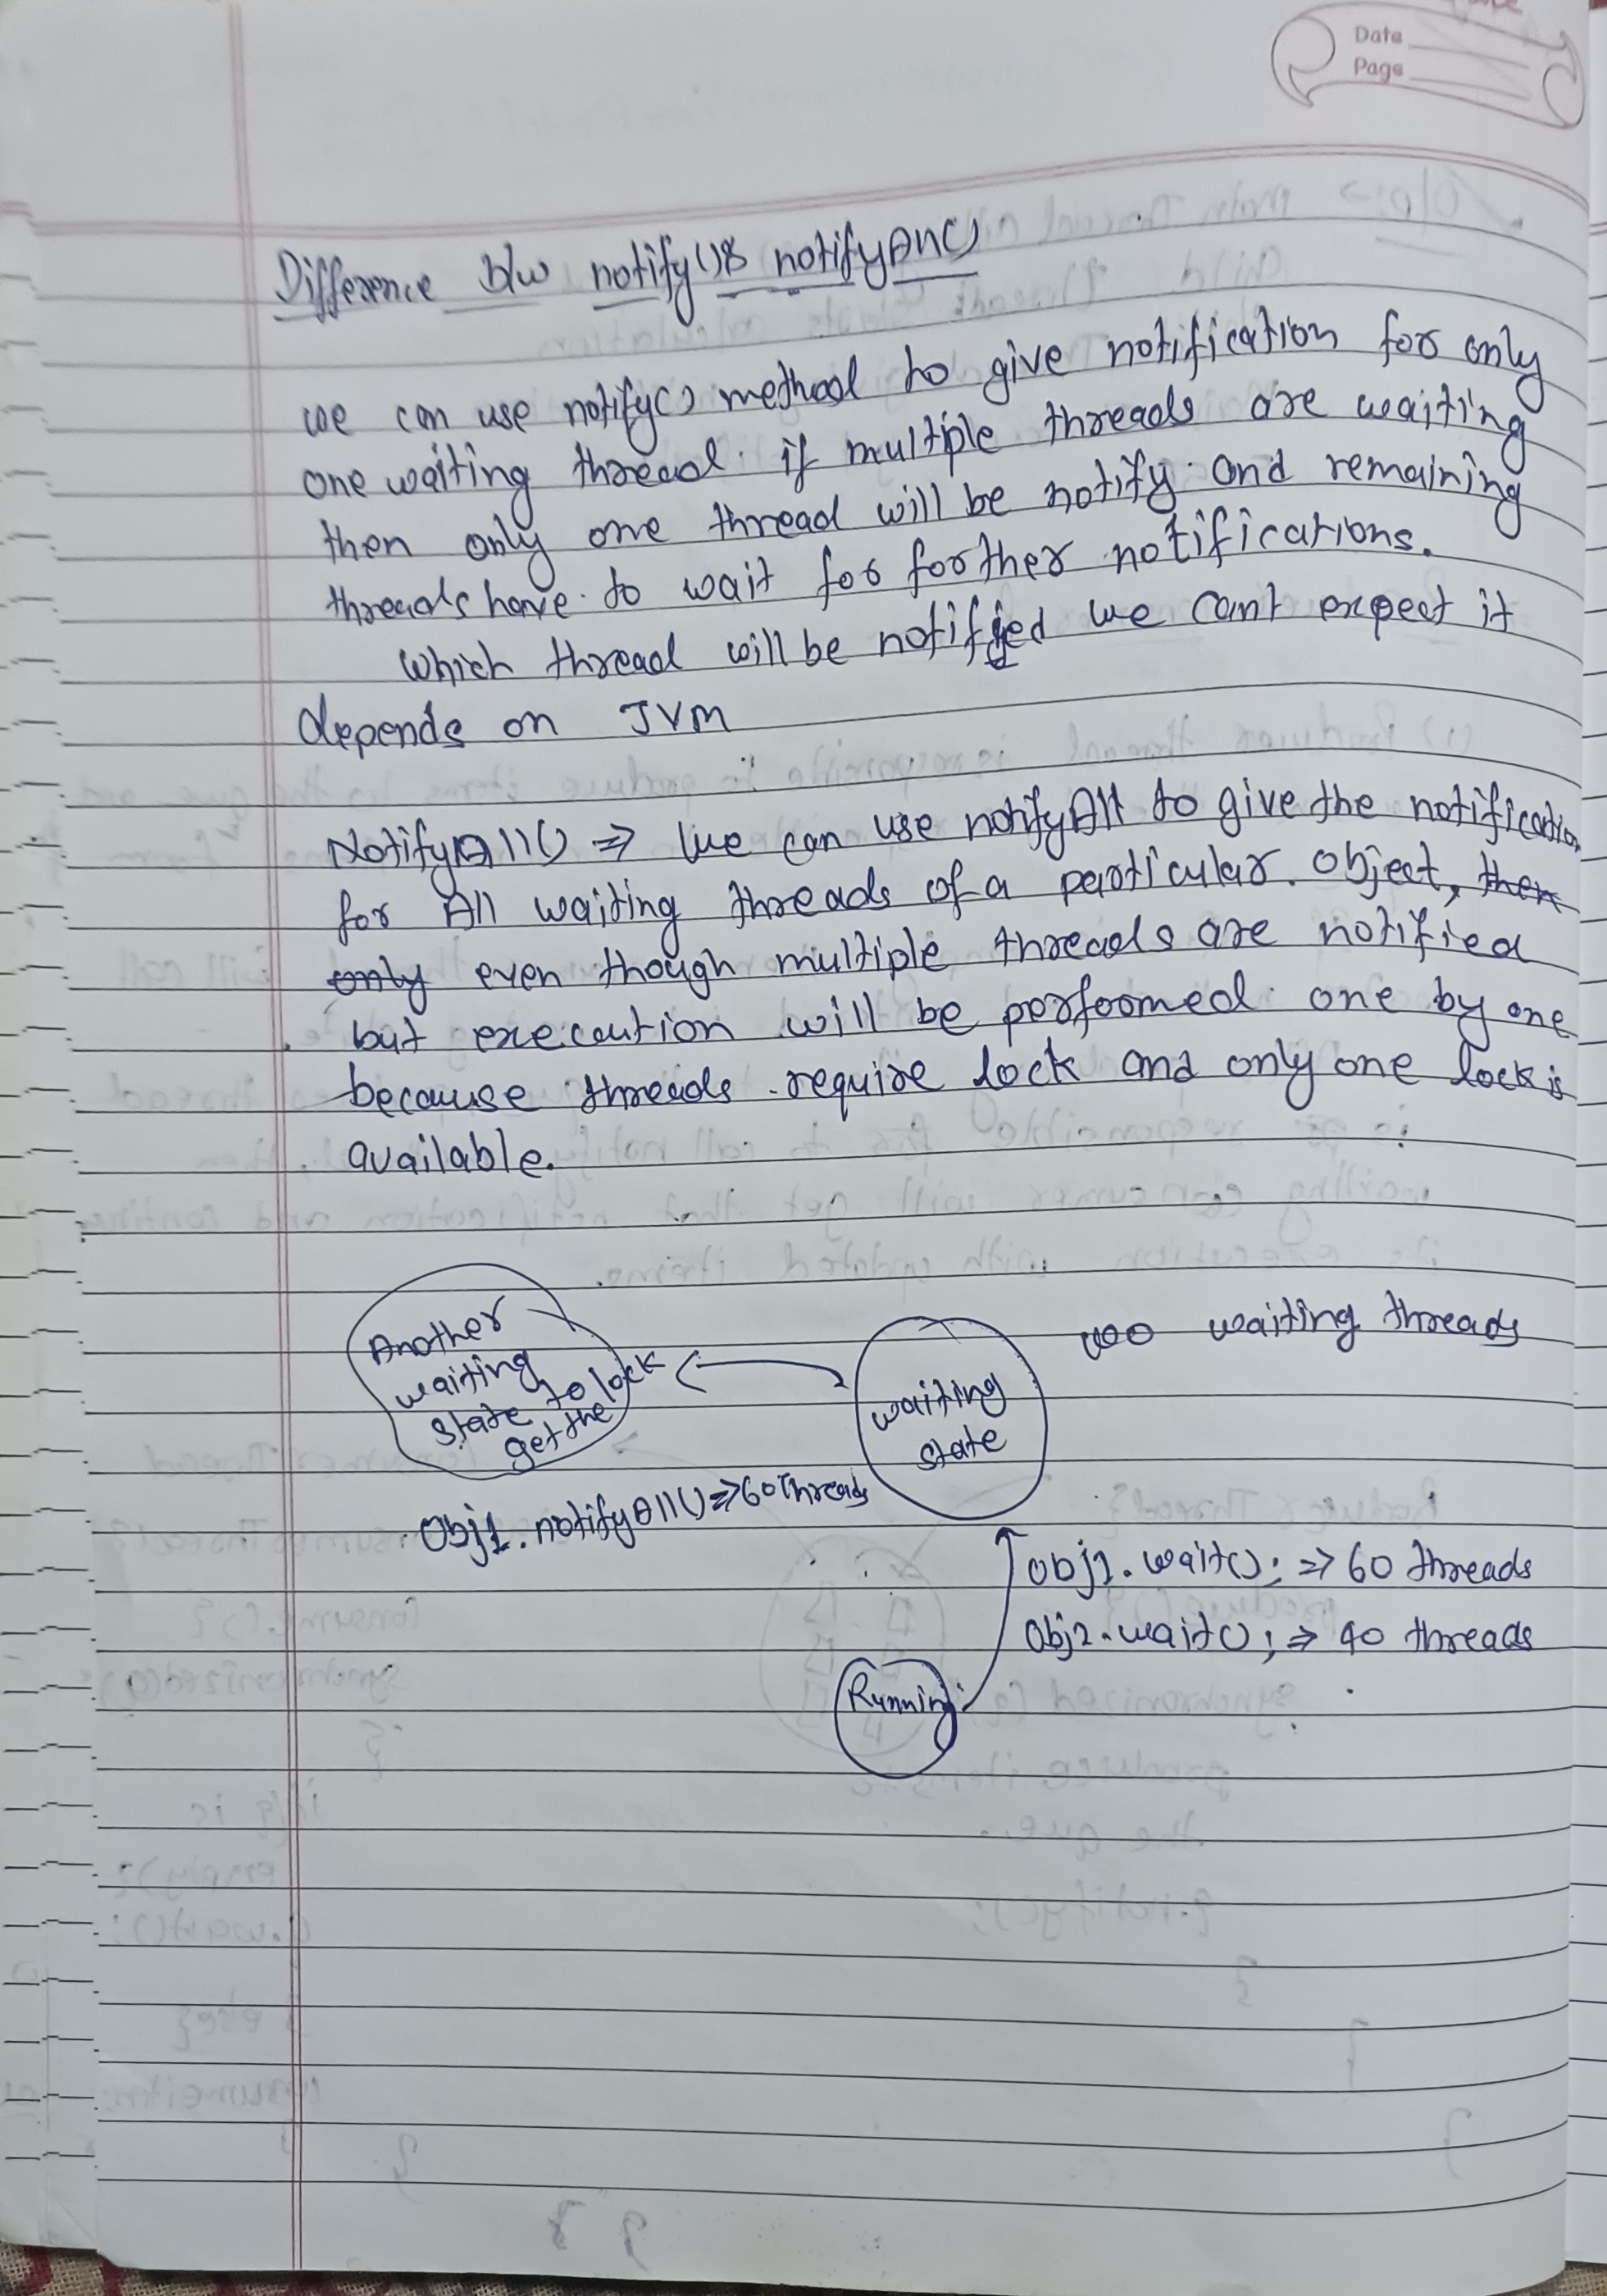 Date
Page
Difference b/w notify() & notifyAll()
we can use notify() method to give notification for only
one waiting thread. if multiple threads are waiting
then only one thread will be notify and remaining
threads have to wait for forther notifications.
Which thread will be notified we can't expect it
depends on JVM
NotifyAll() => We can use notifyAll to give the notification
for All waiting threads of a particular object, then
only even though multiple threads are notified
but execution will be performed one by one
because threads require lock and only one lock is
available.
Another
waiting
state to lock
get the
waiting
state
100 waiting threads
Obj1.notifyAll() => 60 Threads
Obj1.wait(); => 60 threads
Obj2.wait(); => 40 threads
Running